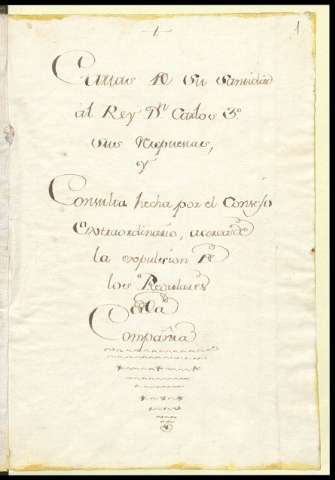 1
Cartas de su Santidad
al Rey Dn Carlos 3º
sus respuestas,
y
Consulta hecha por el Consejo
Extraordinario, acerca de
la expulsion de
los Regulares
de la
Compañia